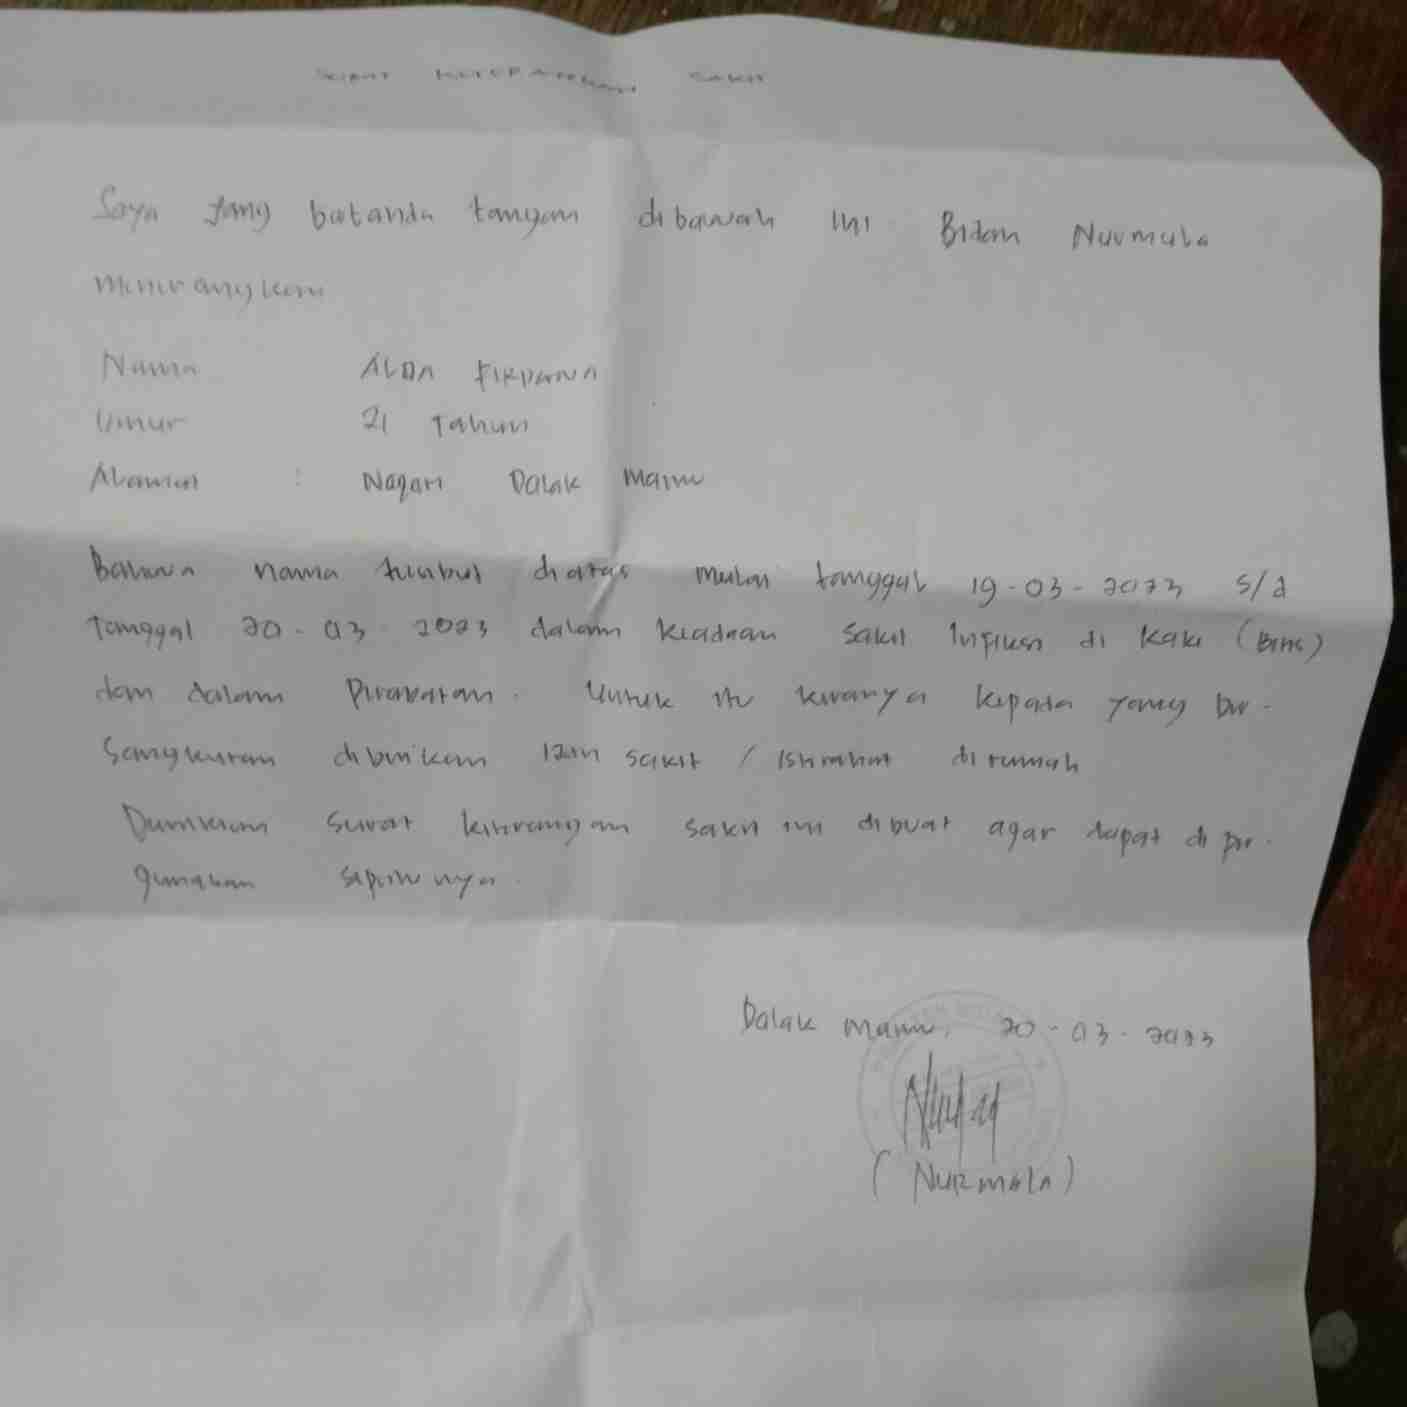 SURAT KETERANGAN SAKIT
Saya yang bertanda tangan dibawah ini Bidan Nurmala
menerangkan
Nama ALDA FIRDANA
Umur 21 Tahun
Alamat : Nagari Dalak
Bahwa nama tersebut diatas mulai tanggal 19-03-2023 s/d
Tanggal 20-03-2023 dalam keadaan sakit Infeksi di kaki
dan dalam Perawatan. Untuk itu kiranya kepada yang ber-
sangkutan diberikan izin sakit / Istirahat dirumah
Demikian surat keterangan sakit ini dibuat agar dapat di per-
gunakan seperlunya.
Dalak 20-03-2023
(NURMALA)